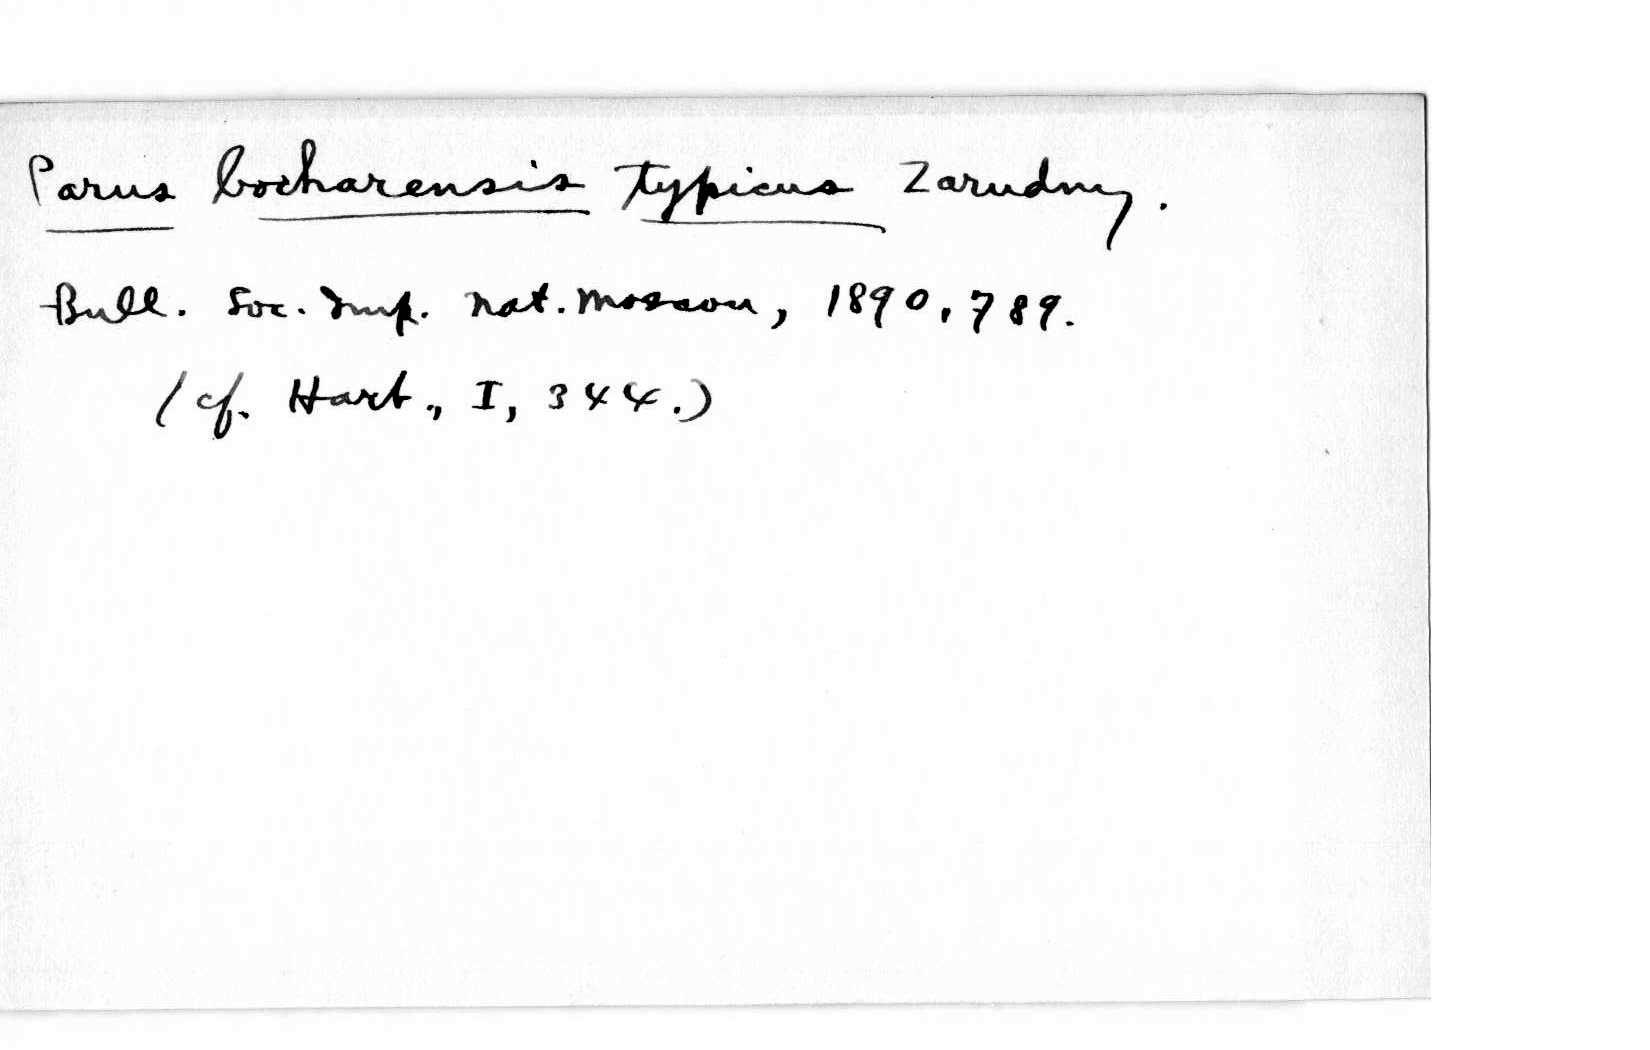 Parus bocharensis typicus Zarudny.
Bull. Soc. Imp. Nat. Moscou, 1890, 789.
(cf. Hart., I, 344.)